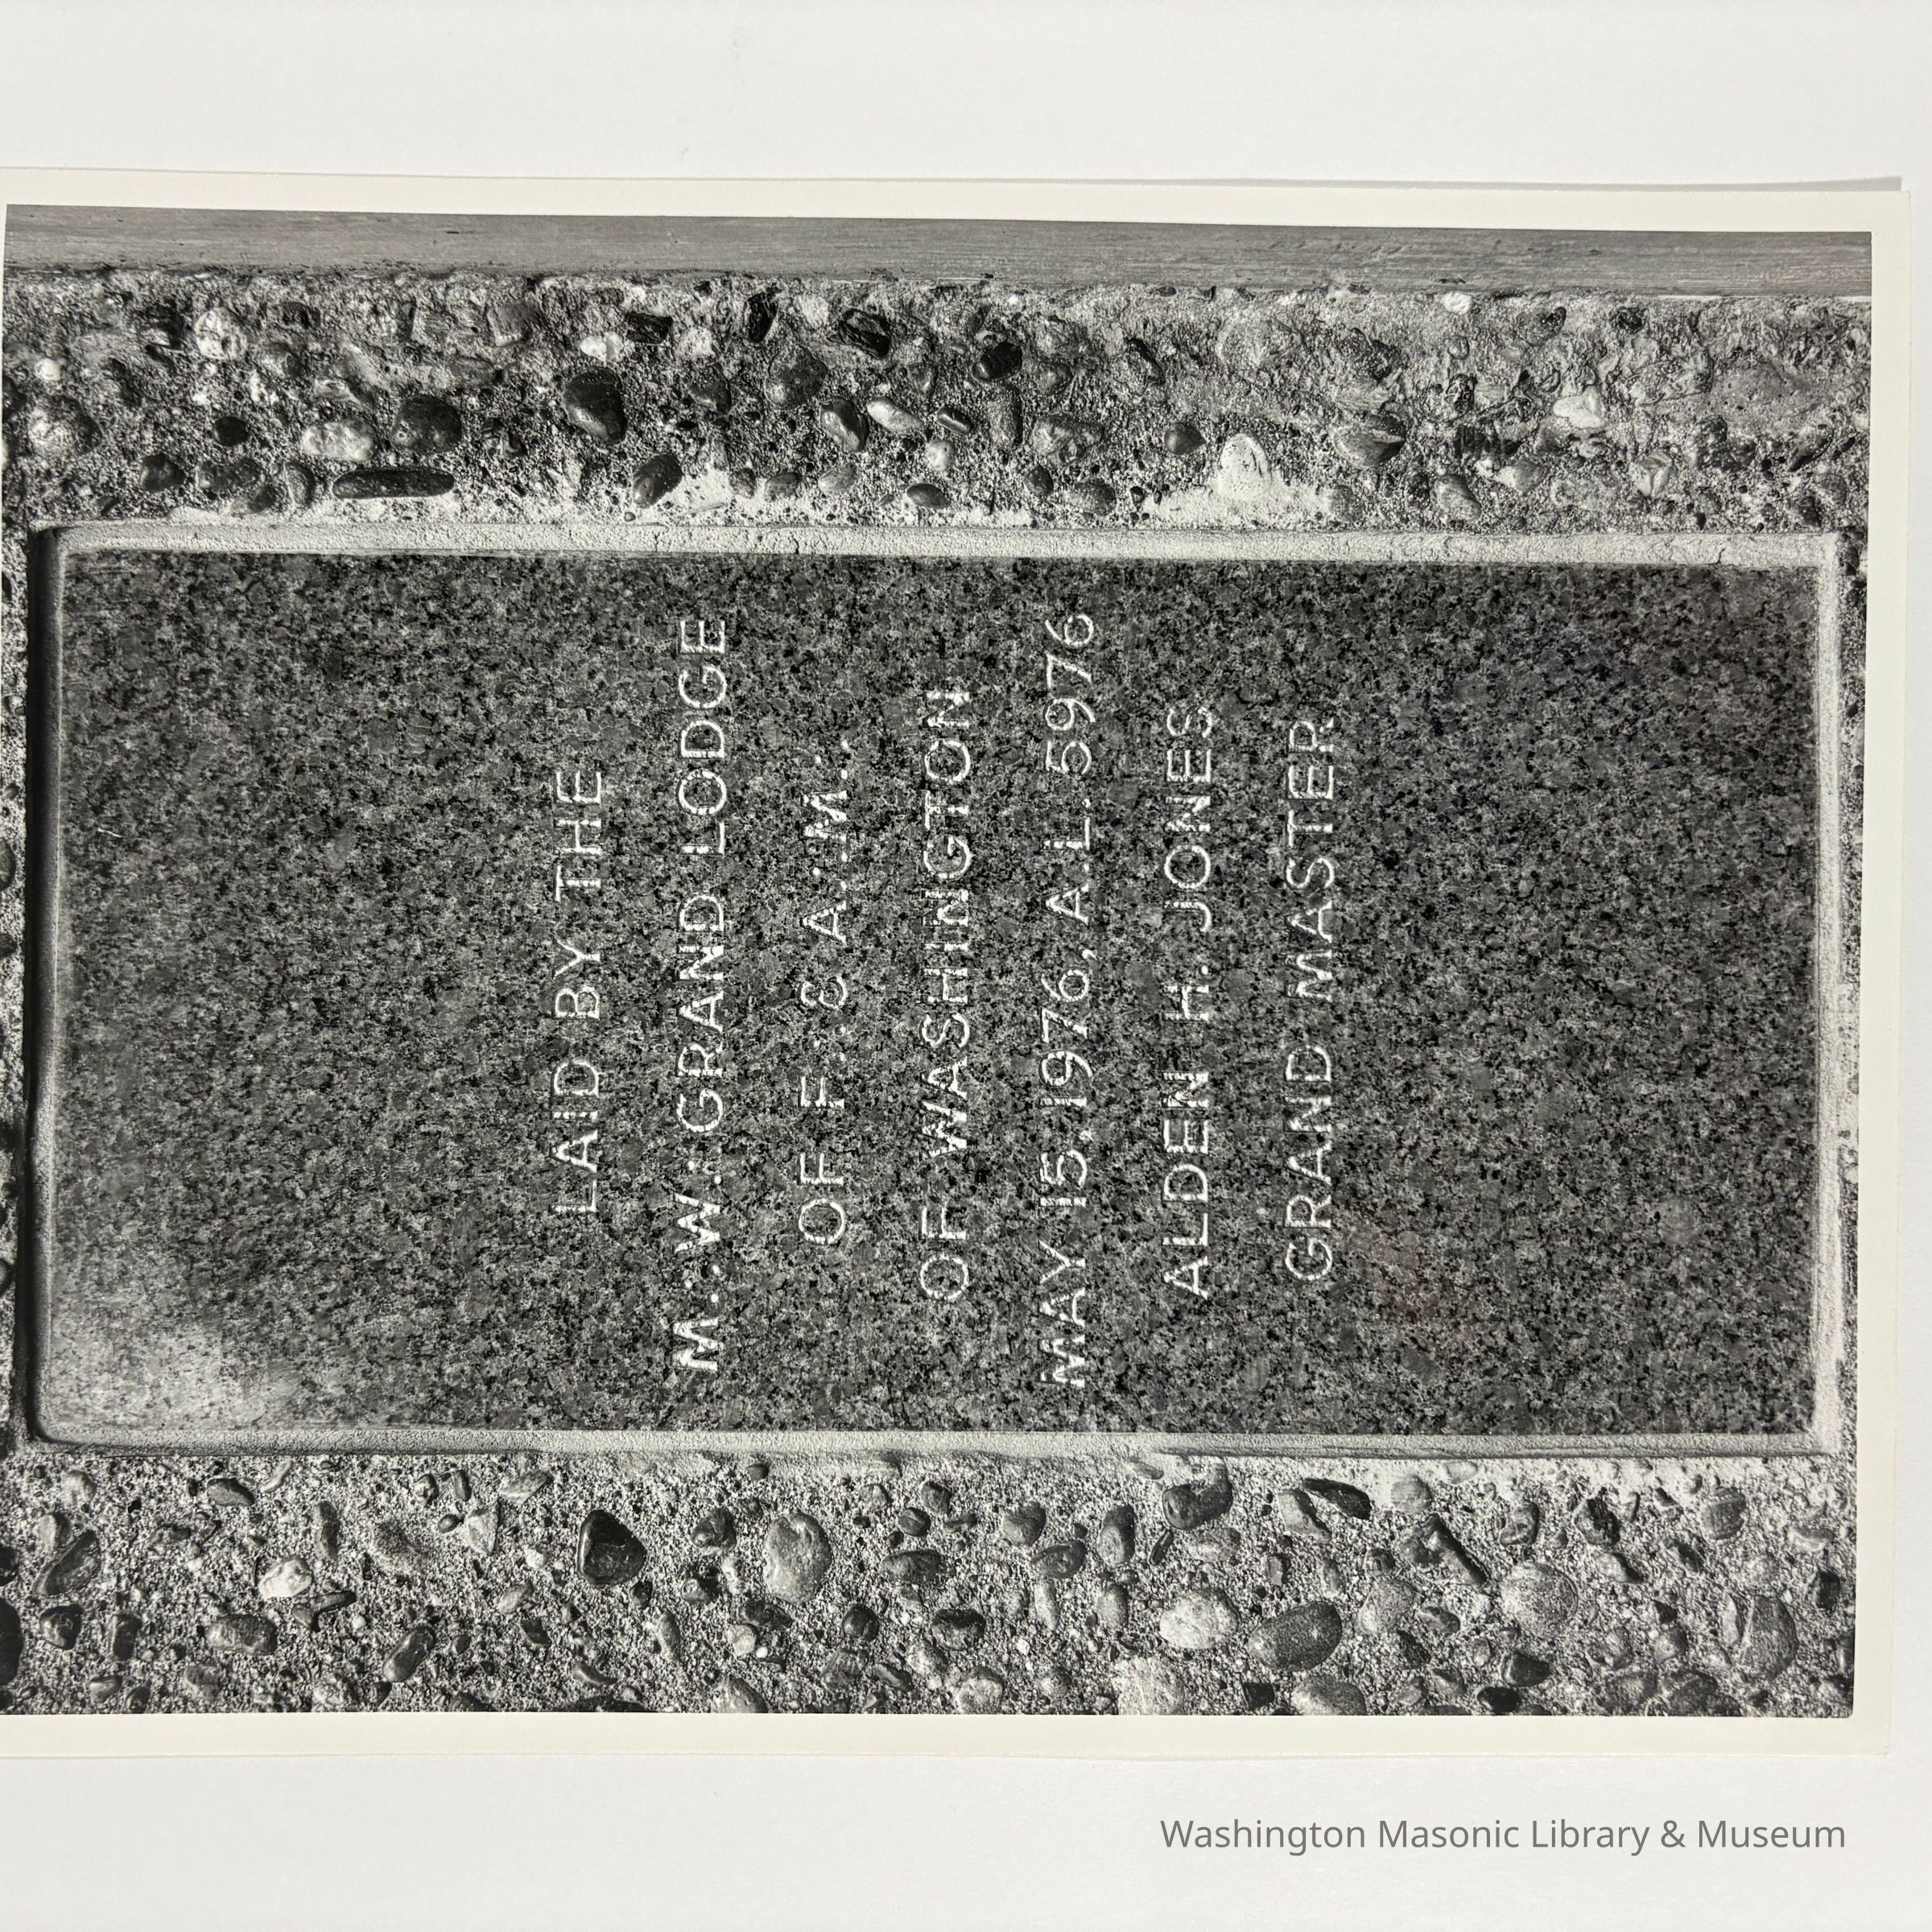 LAID BY THE
M∴W∴GRAND LODGE
OF F∴& A∴M∴
OF WASHINGTON
MAY 15, 1976, A.L. 5976
ALDEN H. JONES
GRAND MASTER
Washington Masonic Library & Museum